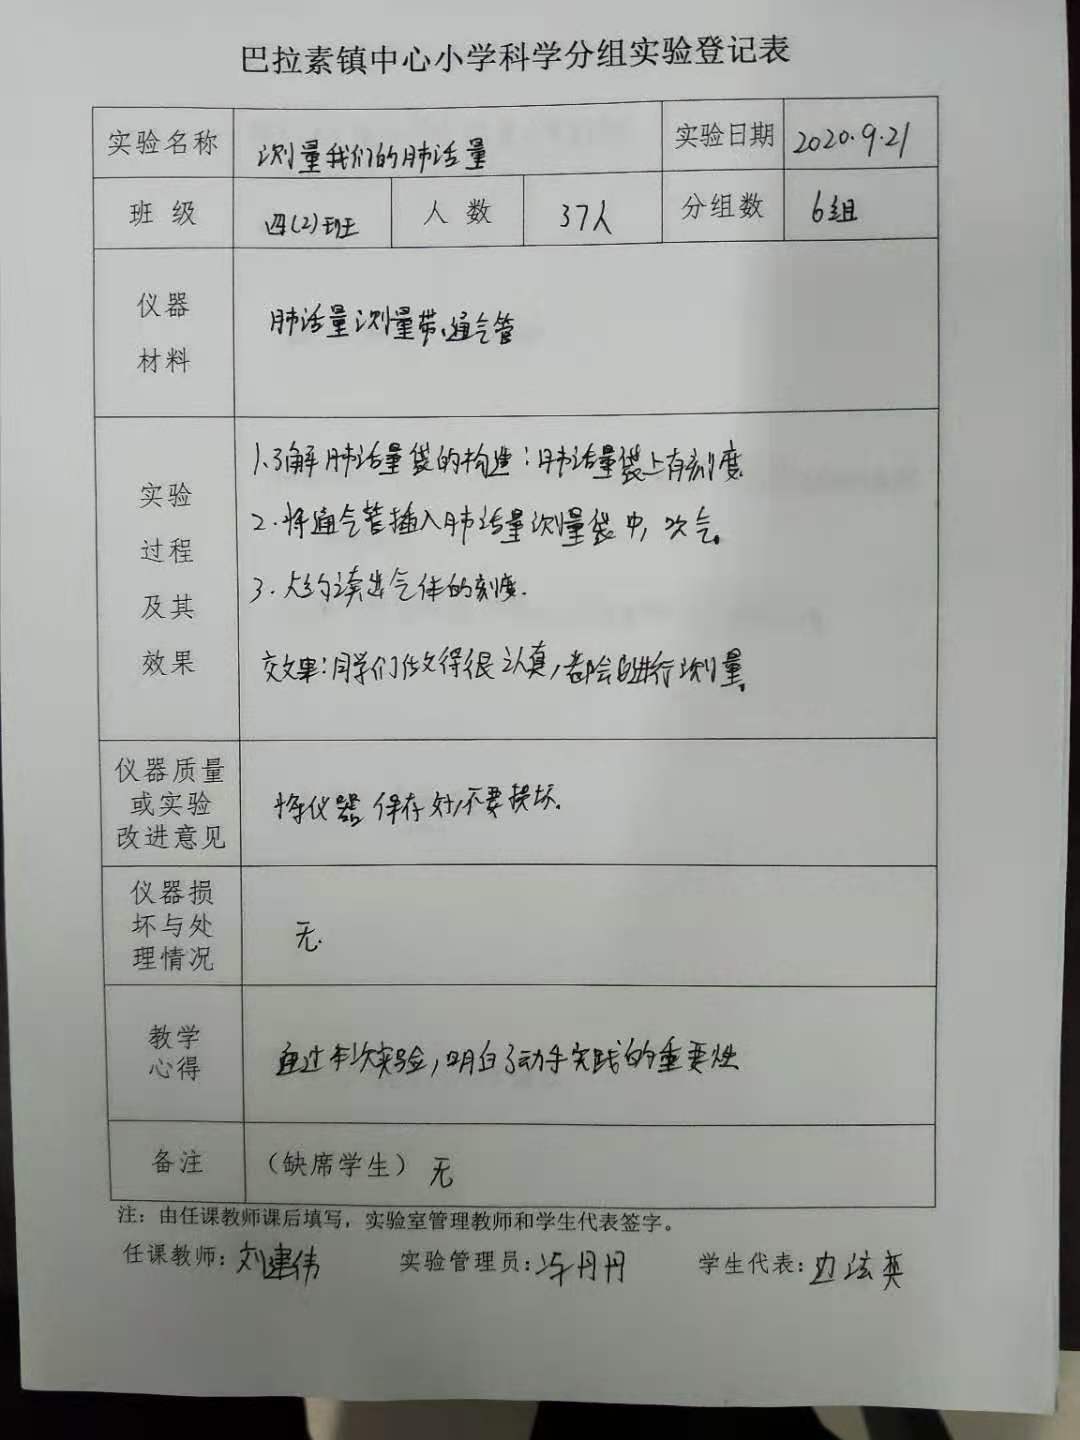 巴拉素镇中心小学科学分组实验登记表
实验名称 测量我们的肺活量 实验日期 2020.9.21
班 级 四(2)班 人 数 37人 分组数 6组
仪器
材料
肺活量测量带、通气管
实验
过程
及其
效果
1.了解肺活量袋的构造:肺活量袋上有刻度
2.将通气管插入肺活量测量袋中,吹气。
3.大约读出气体的刻度.
效果:同学们做得很认真,都会进行测量。
仪器质量
或实验
改进意见
将仪器保存好,不要损坏.
仪器损
坏与处
理情况
无.
教学
心得
通过本次实验,明白了动手实践的重要性
备注 (缺席学生) 无
注:由任课教师课后填写,实验室管理教师和学生代表签字。
任课教师:刘建伟 实验管理员: 丹丹 学生代表: